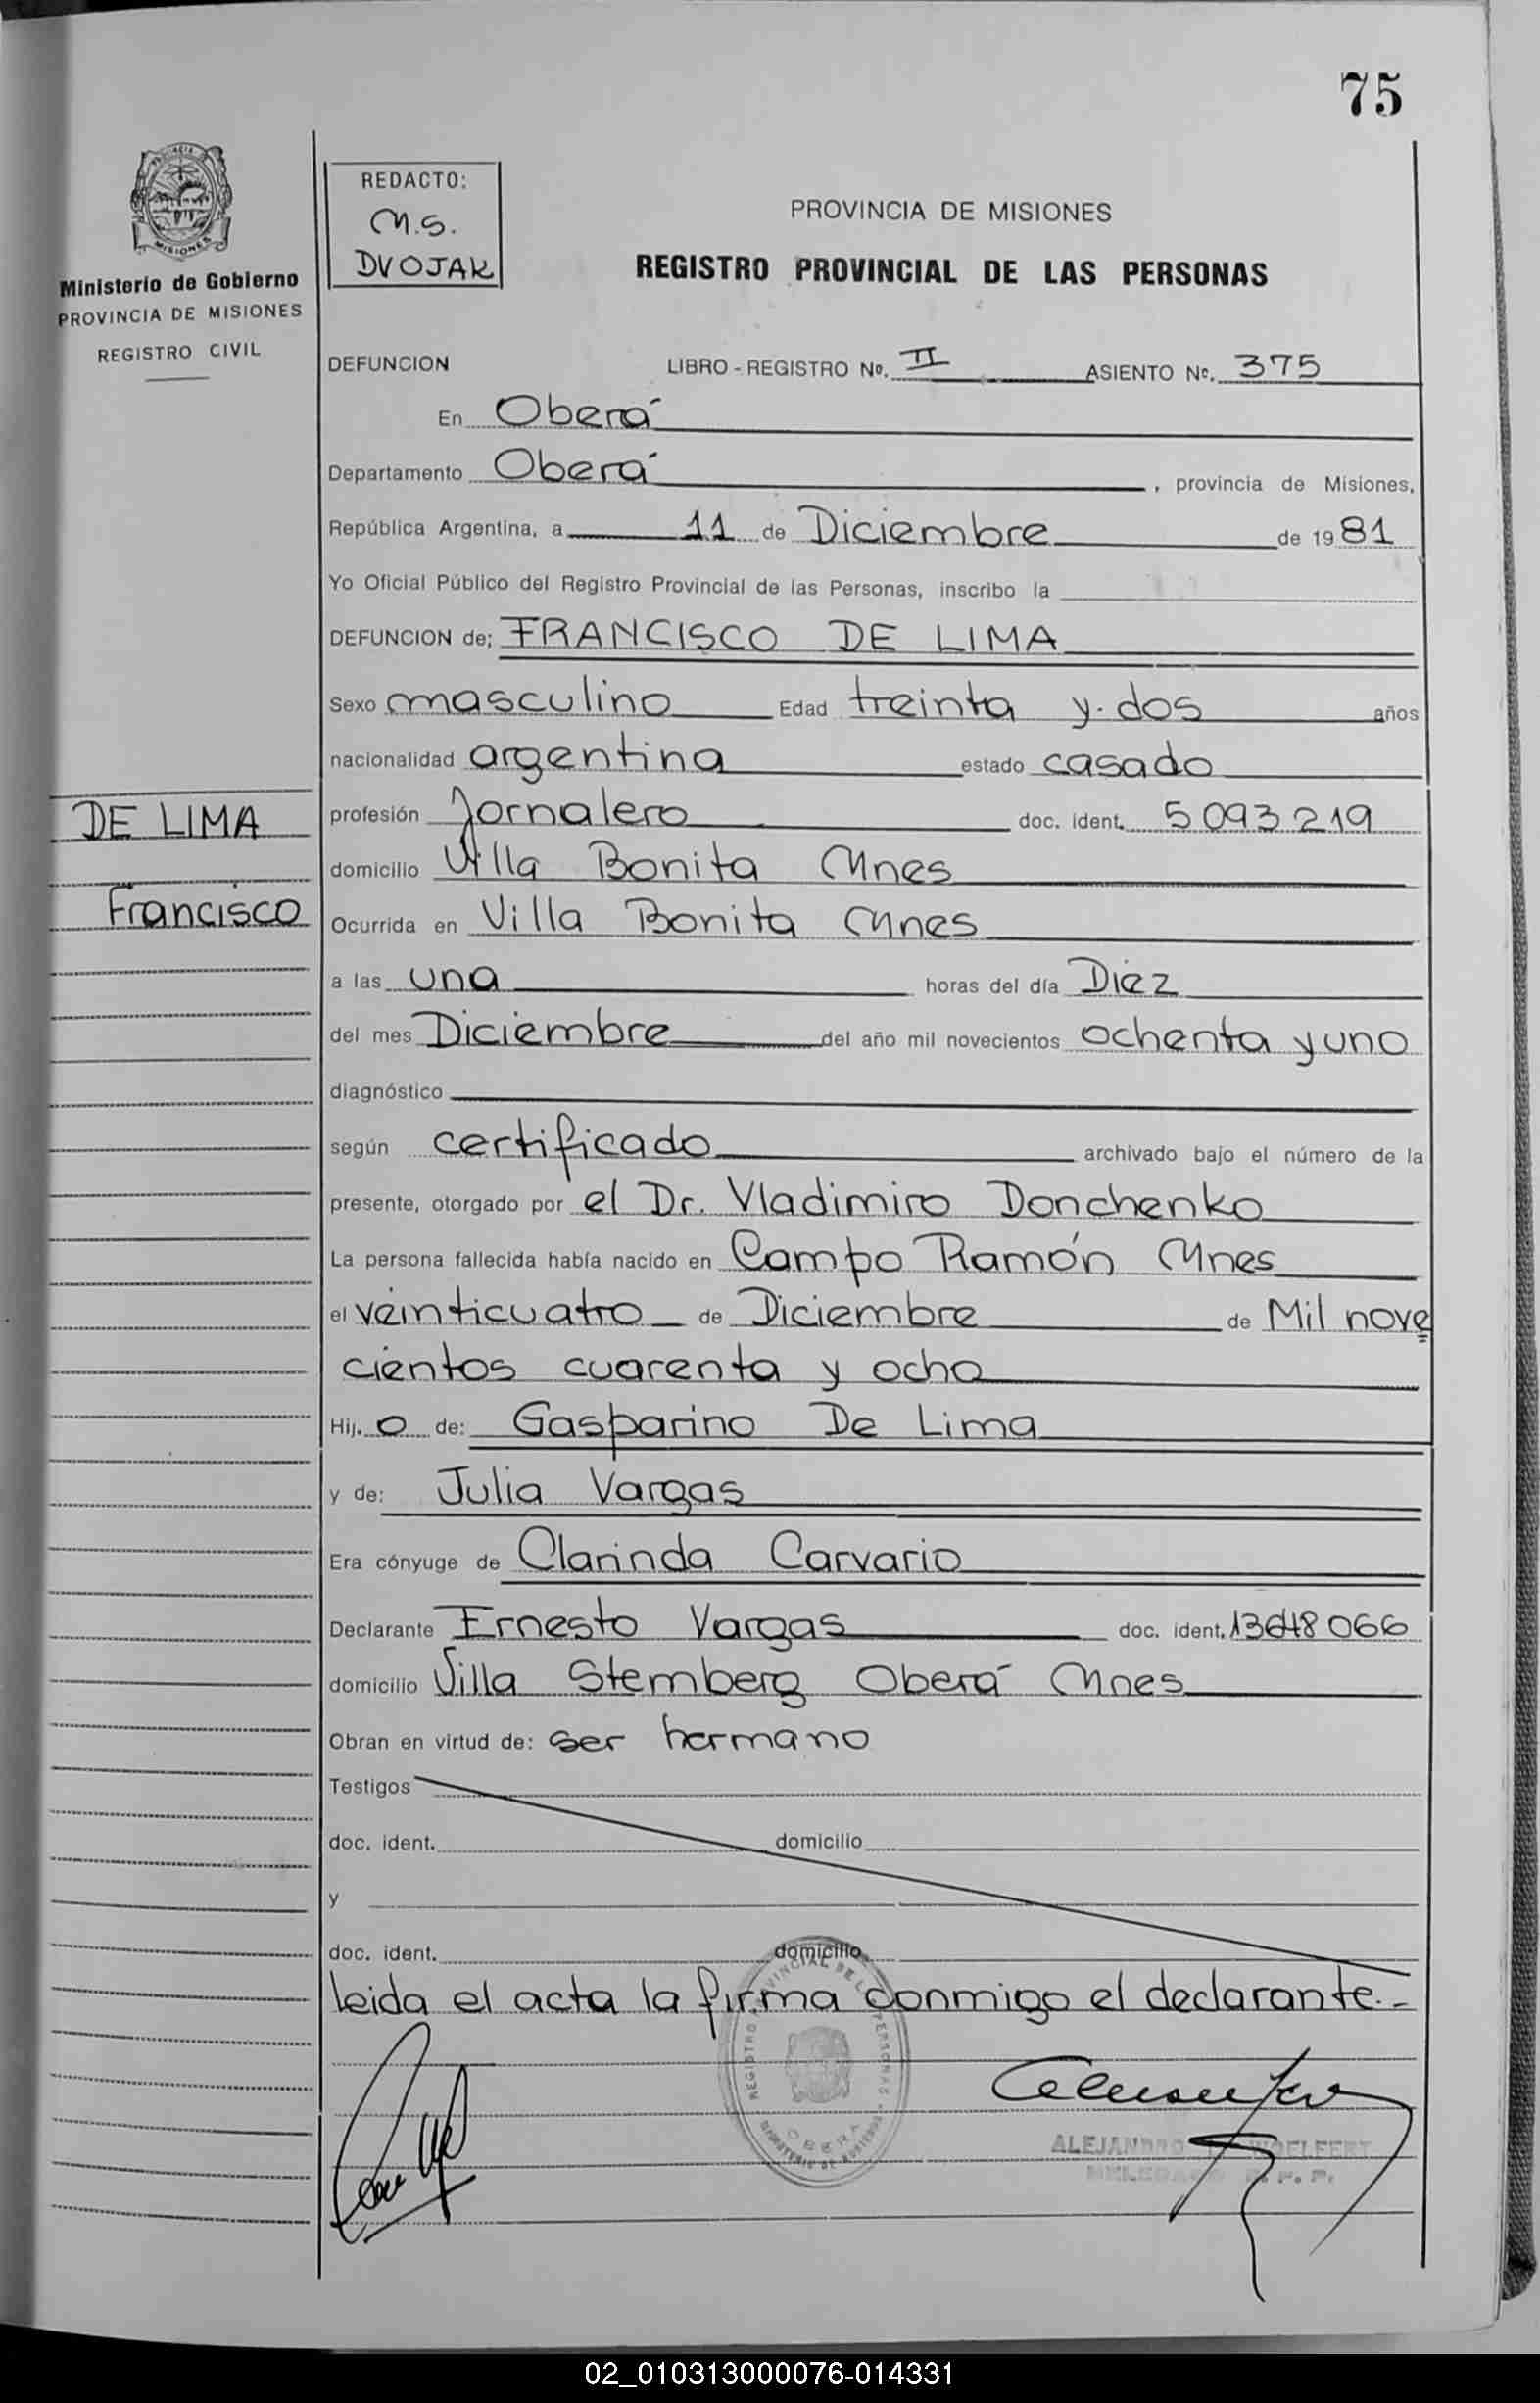 75
PROVINCIA
MISIONES
Ministerio de Gobierno
PROVINCIA DE MISIONES
REGISTRO CIVIL
REDACTO:
M.S.
DVOJAK
PROVINCIA DE MISIONES
REGISTRO PROVINCIAL DE LAS PERSONAS
DEFUNCION LIBRO - REGISTRO Nº. II ASIENTO Nº. 375
En Oberá
Departamento Oberá , provincia de Misiones,
República Argentina, a 11 de Diciembre de 1981
Yo Oficial Público del Registro Provincial de las Personas, inscribo la
DEFUNCION de; FRANCISCO DE LIMA
Sexo masculino Edad treinta y dos años
nacionalidad argentina estado casado
DE LIMA
Francisco
profesión Jornalero doc. ident. 5093219
domicilio Villa Bonita Mnes
Ocurrida en Villa Bonita Mnes
a las una horas del día Diez
del mes Diciembre del año mil novecientos ochenta y uno
diagnóstico
según certificado archivado bajo el número de la
presente, otorgado por el Dr. Vladimiro Donchenko
La persona fallecida había nacido en Campo Ramón Mnes
el veinticuatro de Diciembre de Mil nove
cientos cuarenta y ocho
Hij. o de: Gasparino De Lima
y de: Julia Vargas
Era cónyuge de Clarinda Carvario
Declarante Ernesto Vargas doc. ident.
domicilio Villa Stemberg Oberá Mnes
Obran en virtud de: ser hermano
Testigos
doc. ident. domicilio
y
doc. ident. domicilio
leida el acta la firma conmigo el declarante.-
REGISTRO PROVINCIAL DE LAS PERSONAS
OBERA
MINISTERIO DE GOBIERNO
ALEJANDRO WOELFERT
02_010313000076-014331